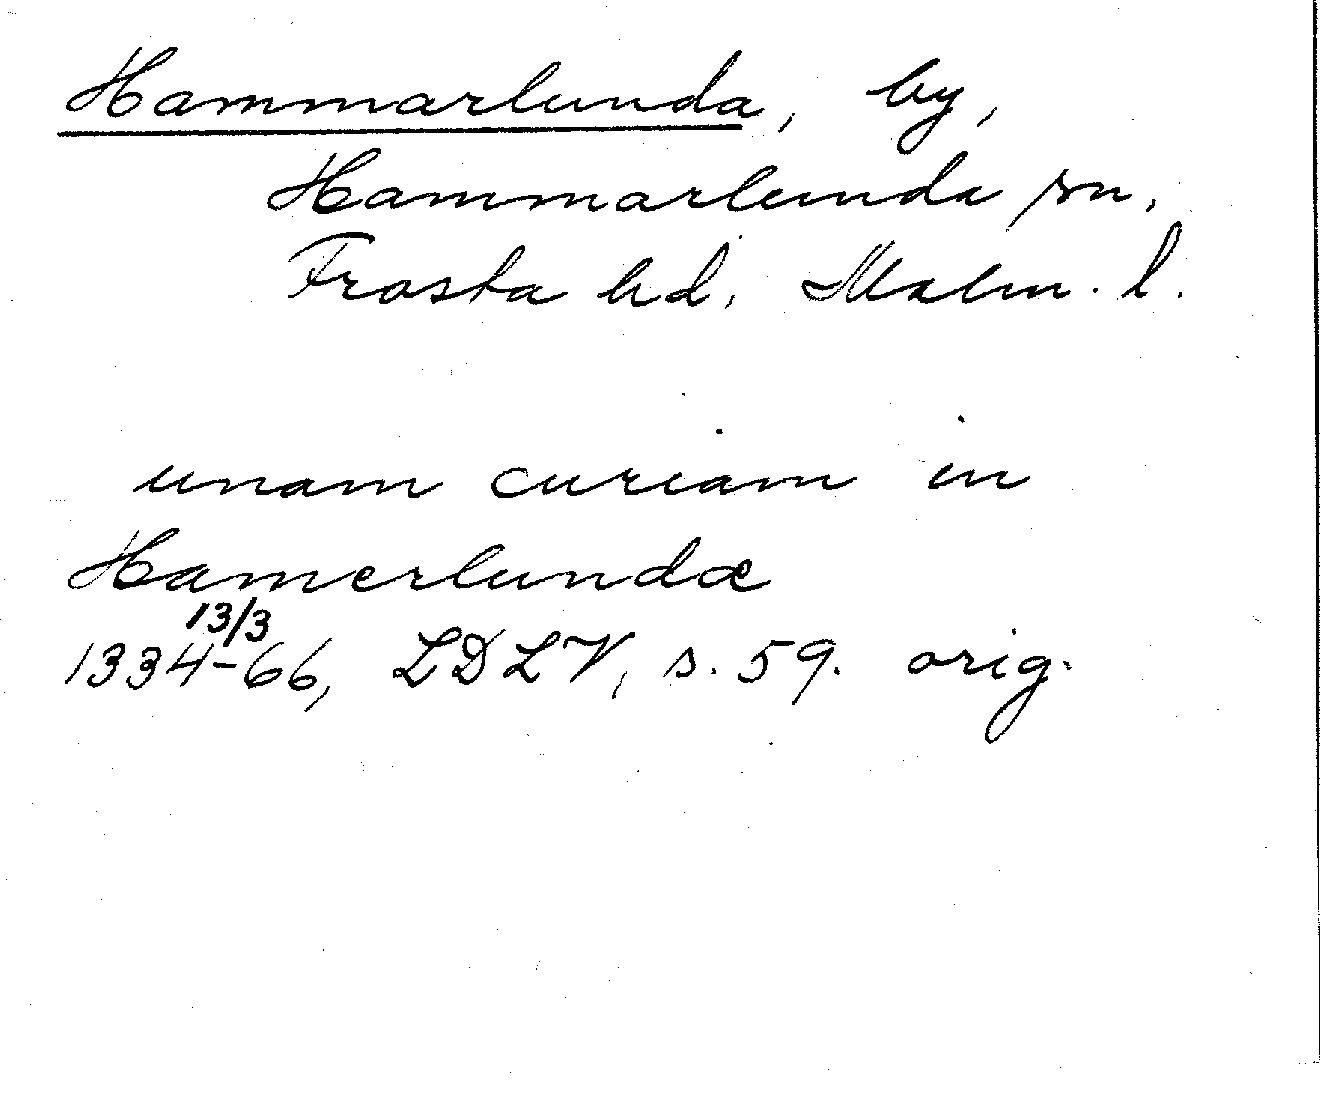 Hammarlunda, by,
Hammarlunda sn,
Frosta hd, Malm. l.
unam curiam in
Hamerlundæ
13/3
1334-66, LDLV, s. 59. orig.